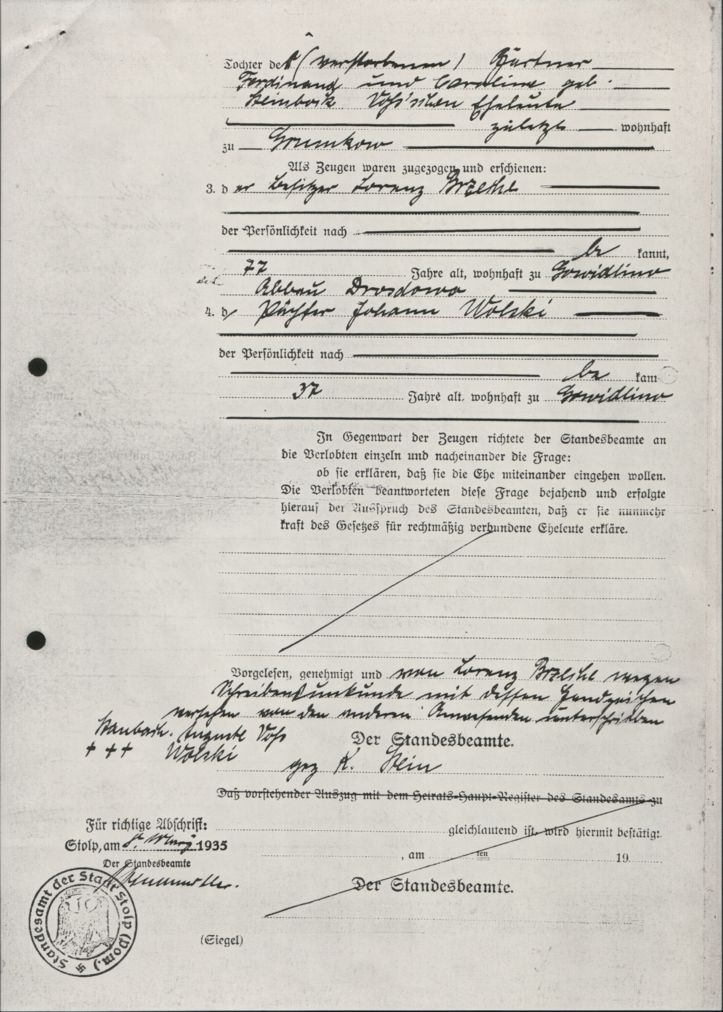 Tochter des (verstorbenen) Gärtner
Ferdinand und Caroline geb.
Steinbock Voss'schen Eheleute
zuletzt wohnhaft
zu Grumkow
Als Zeugen waren zugezogen und erschienen:
3. der Besitzer Lorenz
der Persönlichkeit nach
be kannt,
77 Jahre alt, wohnhaft zu Gowidlino
Abbau Drosdowo
4. d Pächter Johann Wolski
der Persönlichkeit nach
be kam
37 Jahre alt, wohnhaft zu Gowidlino
In Gegenwart der Zeugen richtete der Standesbeamte an
die Verlobten einzeln und nacheinander die Frage:
ob sie erklären, daß sie die Ehe miteinander eingehen wollen.
Die Verlobten beantworteten diese Frage bejahend und erfolgte
hierauf der Ausspruch des Standesbeamten, daß er sie nunmehr
kraft des Gesetzes für rechtmäßig verbundene Eheleute erkläre.
Vorgelesen, genehmigt und von Lorenz wegen
Schreibensunkunde mit dessen Handzeichen
versehen von den anderen Anwesenden unterschrieben
Auguste Voss
Der Standesbeamte.
+ + + Wolski
gez K. Stein
Daß vorstehender Auszug mit dem Heirats-Haupt-Register des Standesamts zu
Für richtige Abschrift:
gleichlautend ist, wird hiermit bestätigt.
Stolp, am 1935
, am ten 19
Der Standesbeamte
Der Standesbeamte.
Standesamt der Stadt Stolp (Pom.)
(Siegel)